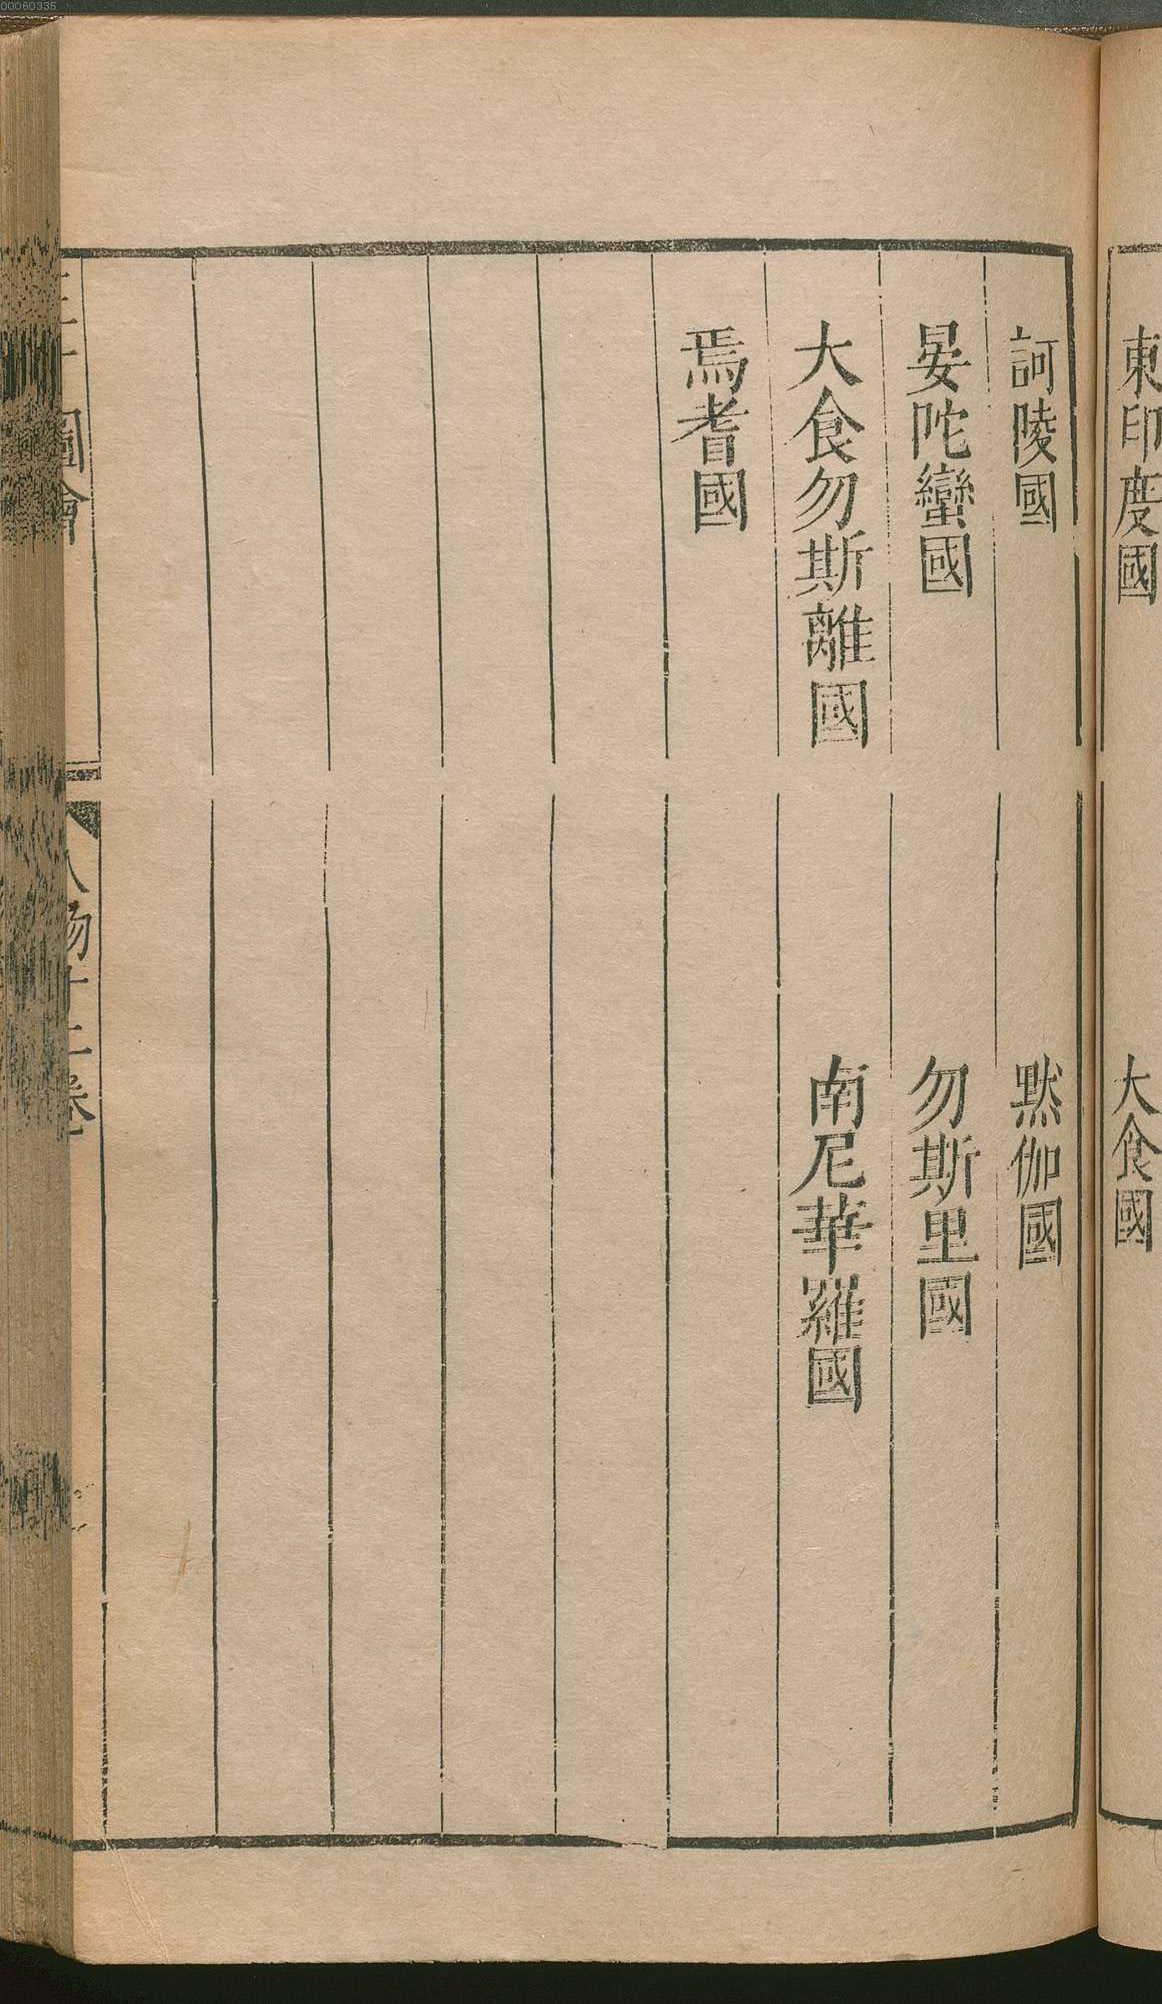 00060335
東印度國
大食國
訶陵國
默伽國
晏陀蠻國
勿斯里國
大食勿斯離國
南尼華羅國
焉耆國
圖會
人物十二卷